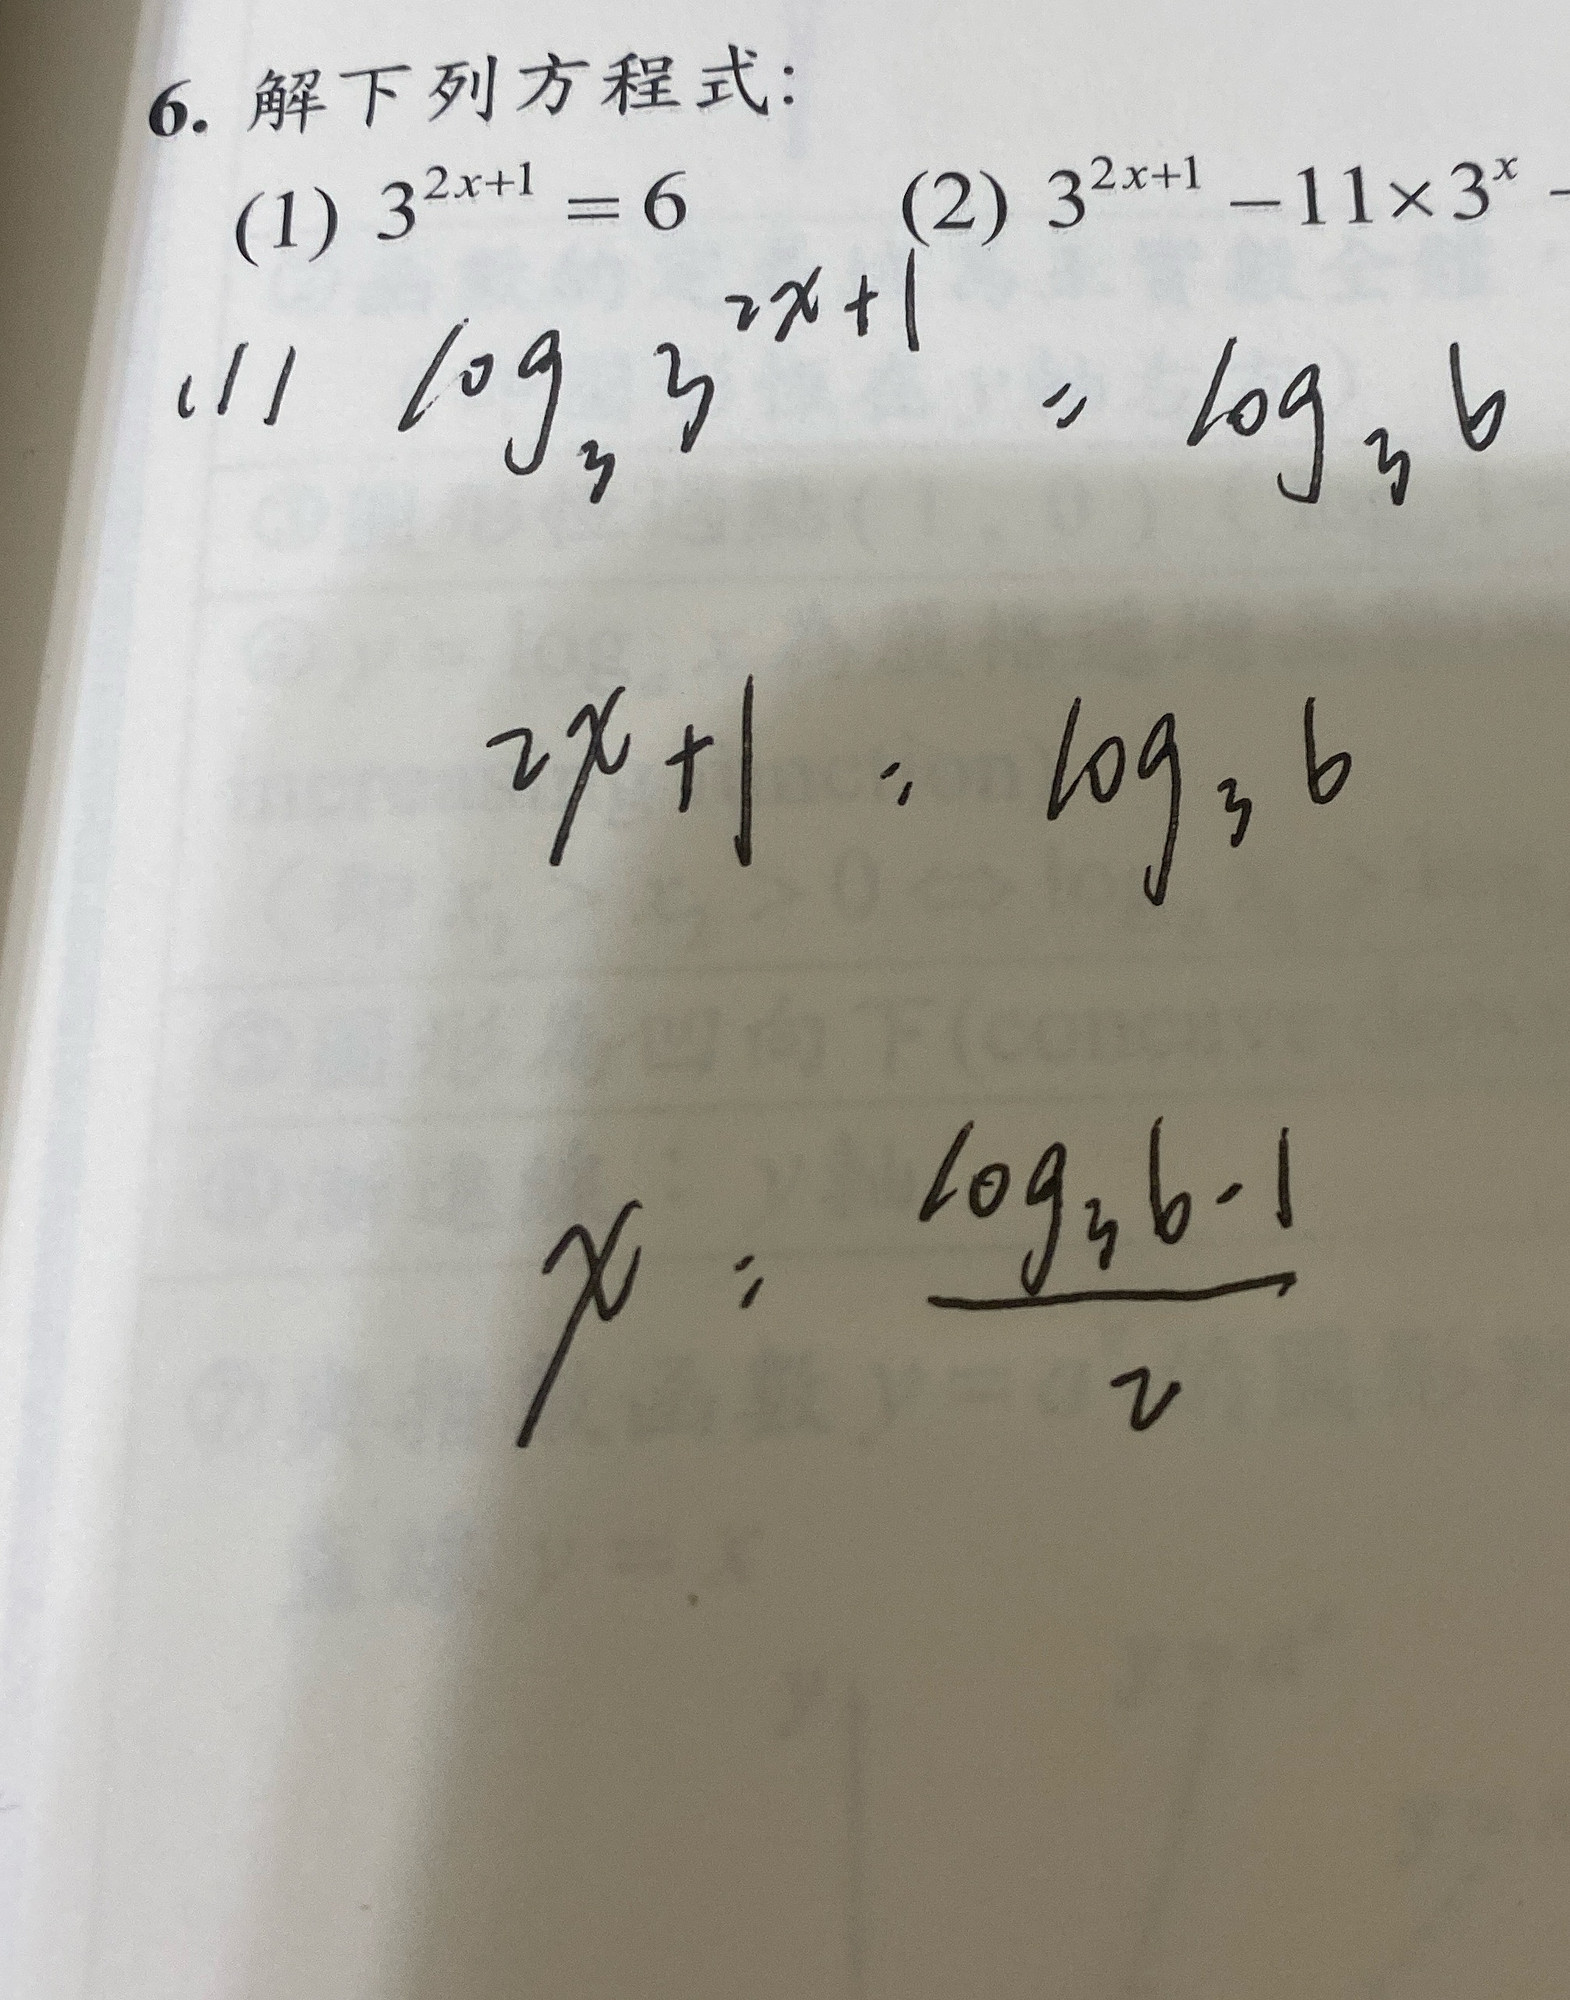 6. 解下列方程式:
(1) 3^{2x+1} = 6 (2) 3^{2x+1} - 11×3^x -
(1) log_3 3^{2x+1} = log_3 6
2x+1 = log_3 6
x = \frac{log_3 6 - 1}{2}